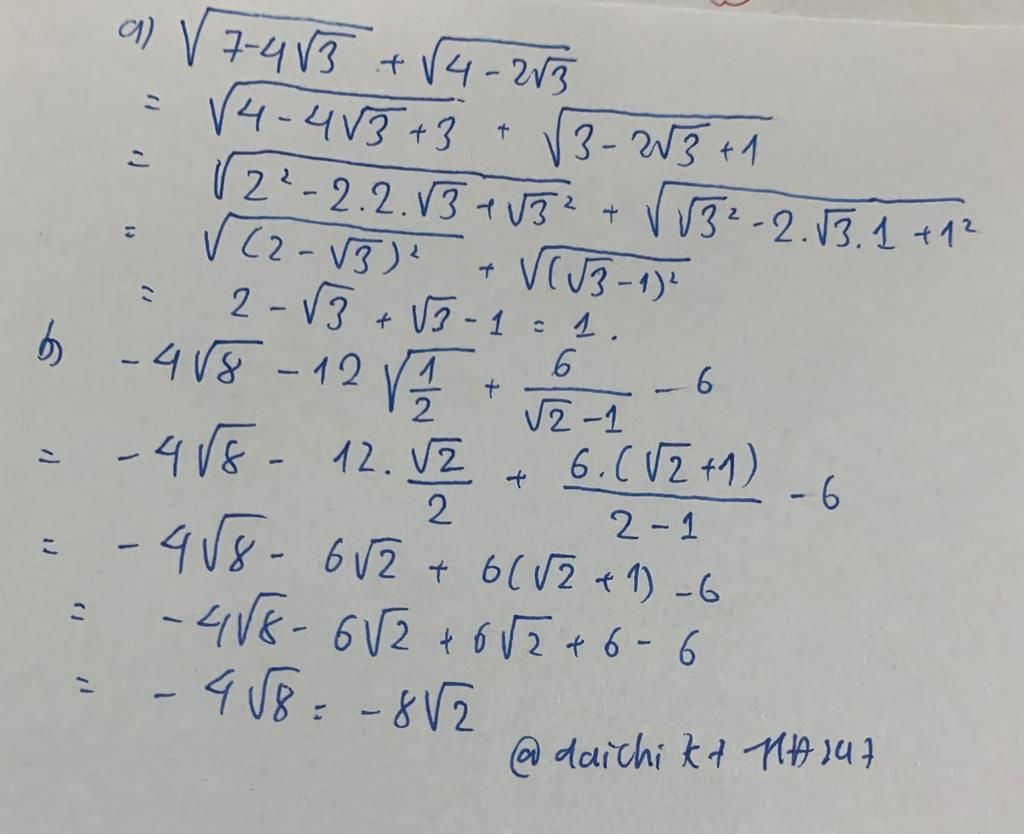 a) √(7-4√3) + √(4-2√3)
= √(4-4√3+3) + √(3-2√3+1)
= √(2²-2.2.√3+√3²) + √(√3²-2.√3.1+1²)
= √((2-√3)²) + √((√3-1)²)
= 2-√3 + √3-1 = 1.
b) -4√8 - 12√(1/2) + 6/(√2-1) - 6
= -4√8 - 12.√2/2 + 6.(√2+1)/(2-1) - 6
= -4√8 - 6√2 + 6(√2+1) - 6
= -4√8 - 6√2 + 6√2 + 6 - 6
= -4√8 = -8√2
@daichi